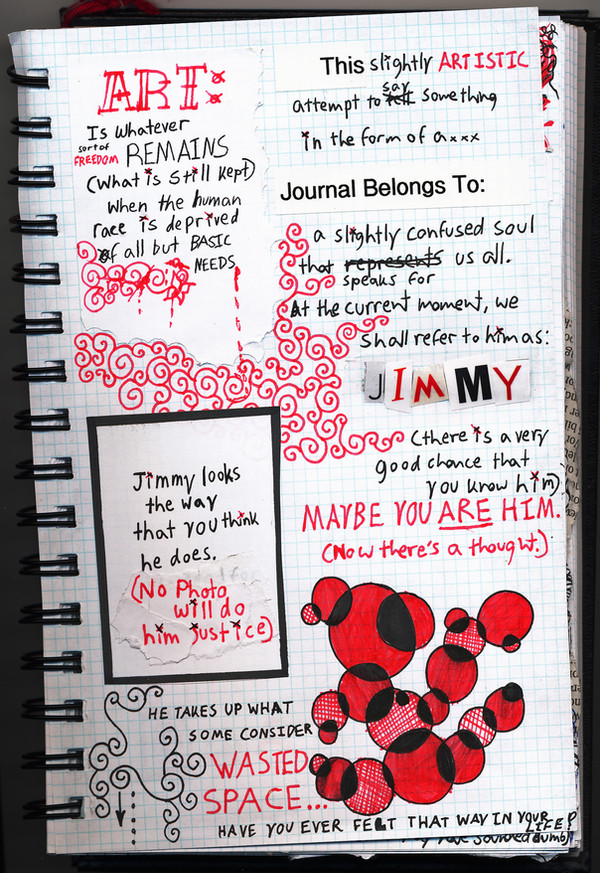 ART:
Is whatever
sort of
FREEDOM REMAINS
(what is still kept)
when the human
race is deprived
of all but BASIC
NEEDS
This slightly ARTISTIC
say
attempt to tell something
in the form of a...
Journal Belongs To:
a slightly confused soul
that represents us all.
speaks for
At the current moment, we
shall refer to him as:
JIMMY
(there is a very
good chance that
you know him)
MAYBE YOU ARE HIM.
(Now there's a thought.)
Jimmy looks
the way
that you think
he does.
(No Photo
will do
him justice)
HE TAKES UP WHAT
SOME CONSIDER
WASTED
SPACE...
HAVE YOU EVER FELT THAT WAY IN YOUR
LIFE?